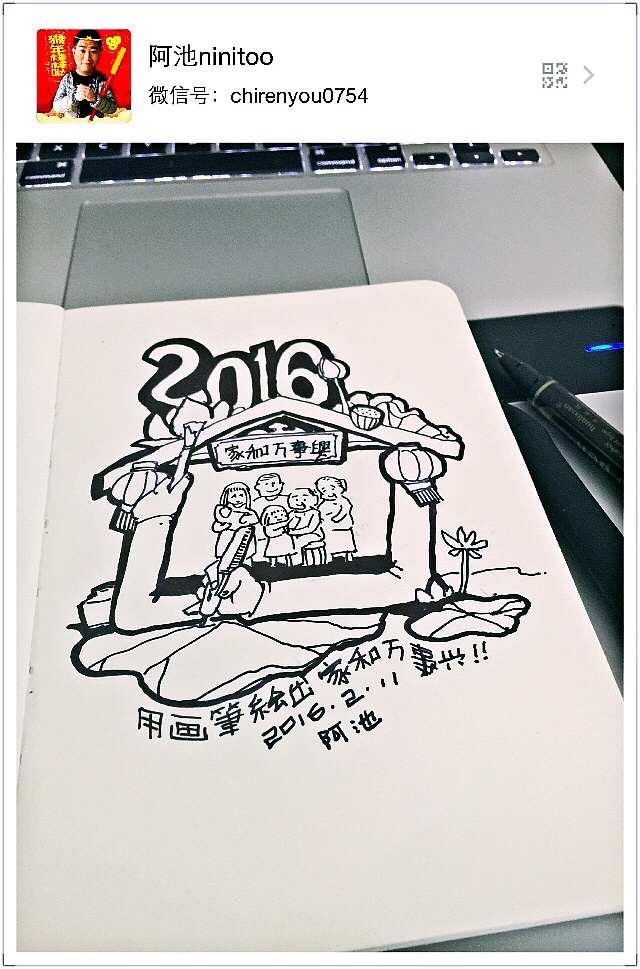 阿池ninitoo
微信号：chirenyou0754
猴年
command
command
option
2016
家和万事興
用画筆绘出家和万事兴!!
2016.2.11
阿池